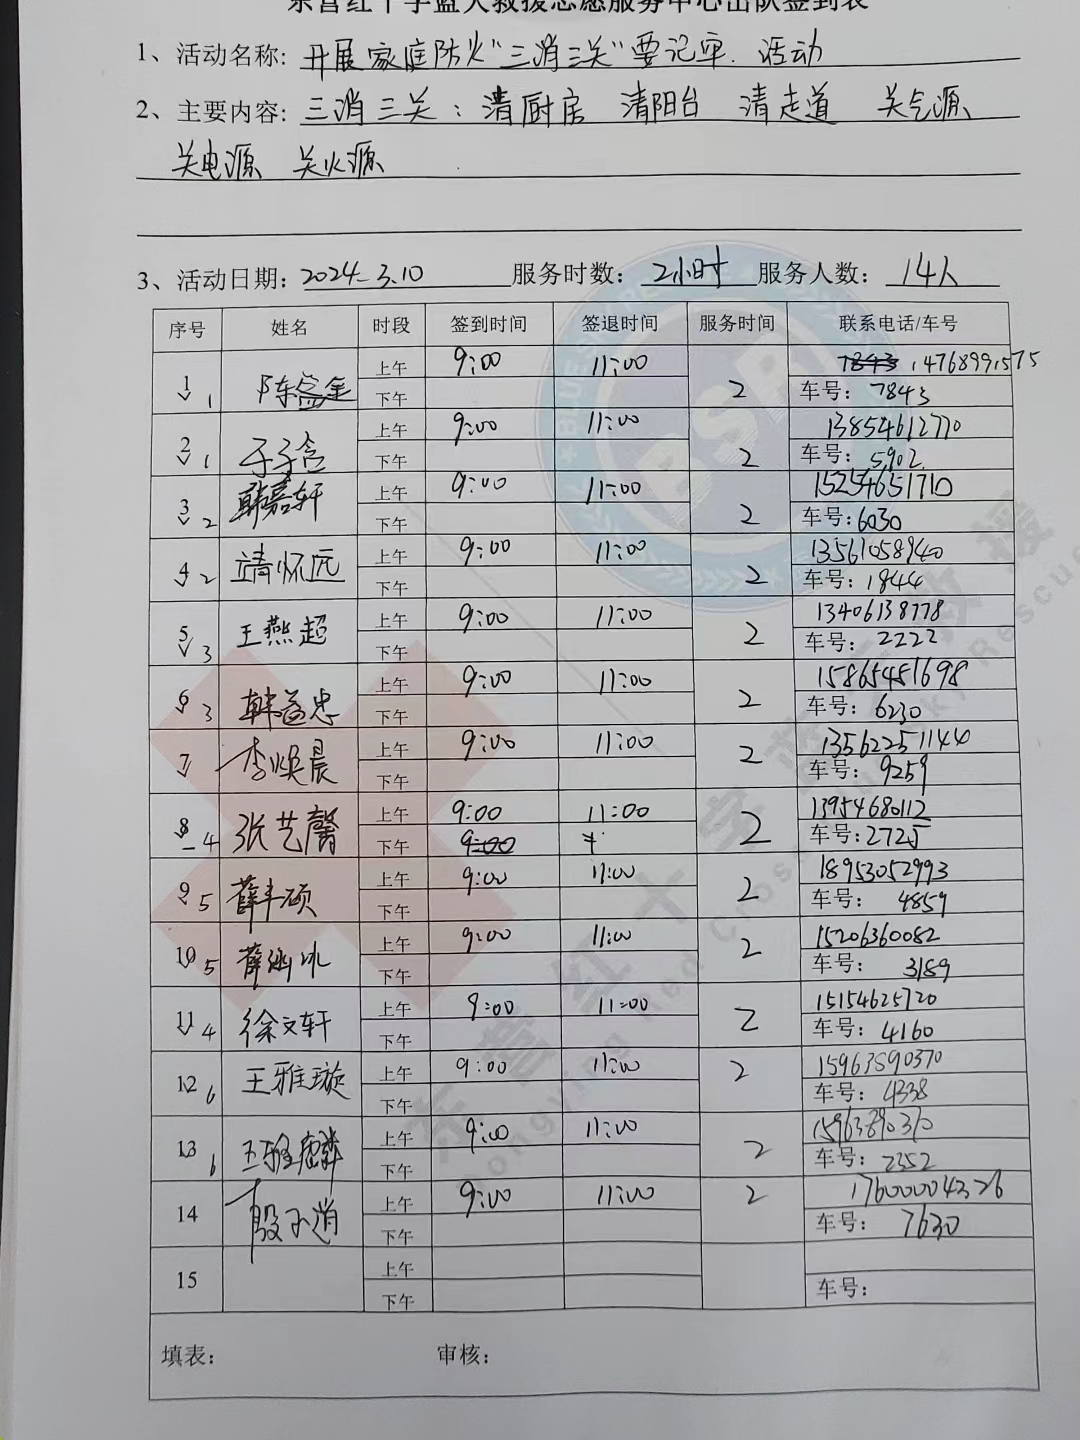 东营红十字蓝天救援志愿服务中心出队签到表
1、活动名称: 开展家庭防火"三消三关"要记牢. 活动
2、主要内容: 三消三关:清厨房 清阳台 清走道 关气源
关电源 关火源
3、活动日期: 2024.3.10 服务时数: 2小时 服务人数: 14人
序号 姓名 时段 签到时间 签退时间 服务时间 联系电话/车号
1 1 陈 上午 9:00 11:00 2 14768991575
下午 车号: 7843
2 1 于子含 上午 9:00 11:00 2 13854612770
下午 车号: 5902
3 2 韩嘉轩 上午 9:00 11:00 2 15254651710
下午 车号: 6030
4 2 靖怀远 上午 9:00 11:00 2 13561058940
下午 车号: 1844
5 3 王燕超 上午 9:00 11:00 2 13406138778
下午 车号: 2222
6 3 韩益忠 上午 9:00 11:00 2 15865481698
下午 车号: 6230
7 李焕晨 上午 9:00 11:00 2 13562251144
下午 车号: 9259
8 4 张艺馨 上午 9:00 11:00 2 13954680112
下午 9:00 车号: 2725
9 5 薛丰硕 上午 9:00 11:00 2 18953052993
下午 车号: 4859
10 5 薛涵冰 上午 9:00 11:00 2 15206360082
下午 车号: 3189
11 4 徐文轩 上午 9:00 11:00 2 15154625720
下午 车号: 4160
12 6 王雅璇 上午 9:00 11:00 2 15963890370
下午 车号: 4338
13 6 王 麟 上午 9:00 11:00 2 15963890370
下午 车号: 2352
14 殷子逍 上午 9:00 11:00 2 17600004326
下午 车号: 7630
15 上午
下午 车号:
填表: 审核: